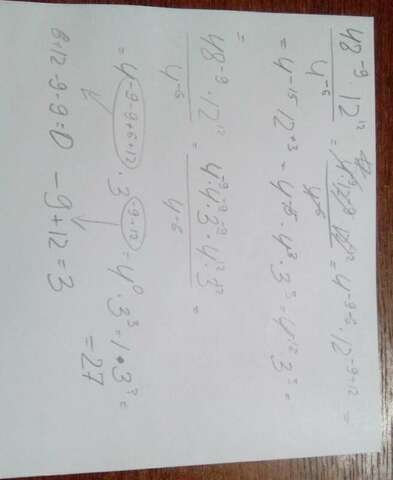 48⁻⁹ · 12¹² / 4⁻⁶ = 4⁻⁹ · 12⁻⁹ · 12¹² / 4⁻⁶ = 4⁻⁹⁻⁶ · 12⁻⁹⁺¹² =
= 4⁻¹⁵ · 12⁺³ = 4⁻¹⁵ · 4³ · 3³ = 4⁻¹² · 3³ =
=
48⁻⁹ · 12¹² / 4⁻⁶ = 4⁻⁹ · 4⁻⁹ · 3⁻⁹ · 4¹² · 3¹² / 4⁻⁶ =
= 4⁻⁹⁻⁹⁺⁶⁺¹² · 3⁻⁹⁺¹² = 4⁰ · 3³ = 1 · 3³ =
= 27
6+12-9-9=0 -9+12=3